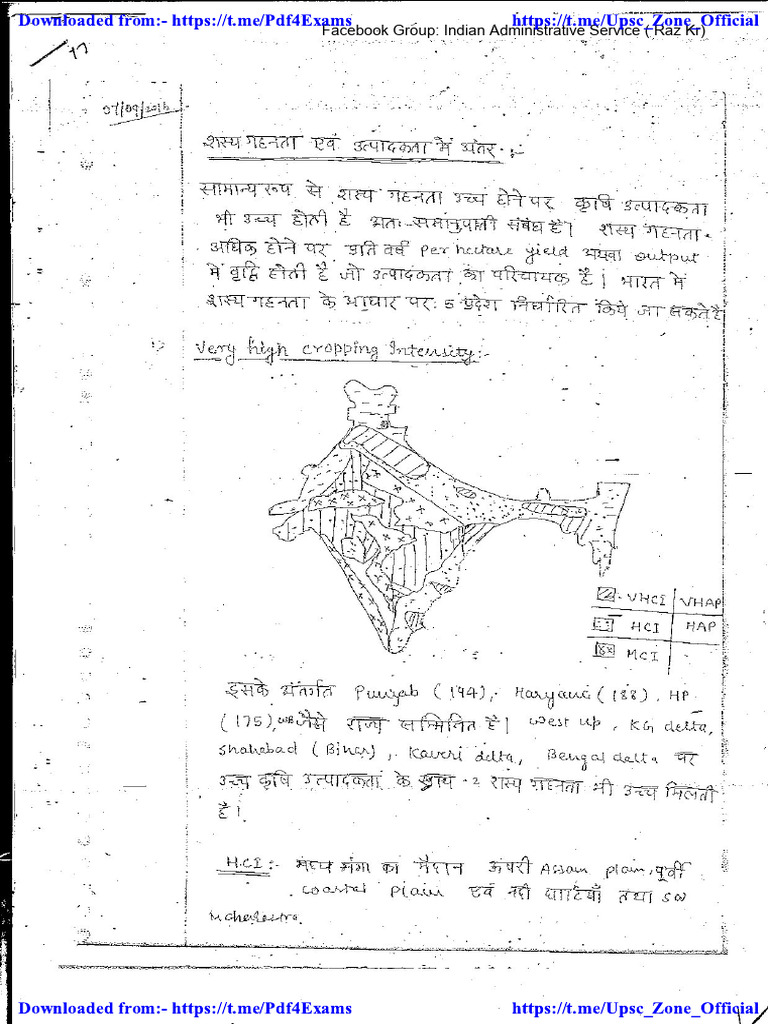 Downloaded from:- https://t.me/Pdf4Exams https://t.me/Upsc_Zone_Official
Facebook Group: Indian Administrative Service ( Raz Kr)
07/09/2016
शस्य गहनता एवं उत्पादकता में अंतर :-
सामान्य रूप से शस्य गहनता उच्च होने पर कृषि उत्पादकता
भी उच्च होती है अतः समानुपाती संबंध है। शस्य गहनता
अधिक होने पर प्रति वर्ष per hectare yield अथवा output
में वृद्धि होती है जो उत्पादकता का परिचायक है। भारत में
शस्य गहनता के आधार पर 5 प्रदेश निर्धारित किये जा सकते है
Very high cropping Intensity:-
VHCI VHAP
HCI HAP
MCI -
इसके अंतर्गत Punjab (194), Haryana (188), HP
(175), WB जैसे राज्य सम्मिलित है। West up, KG delta,
Shahabad (Bihar), Kaveri delta, Bengal delta पर
उच्च कृषि उत्पादकता के साथ-2 शस्य गहनता भी उच्च मिलती
है।
H.C.I :- मध्य गंगा का मैदान ऊपरी Assam plain, पूर्वी
coastal plain एवं नदी घाटियाँ तथा SW
Maharastra.
Downloaded from:- https://t.me/Pdf4Exams https://t.me/Upsc_Zone_Official